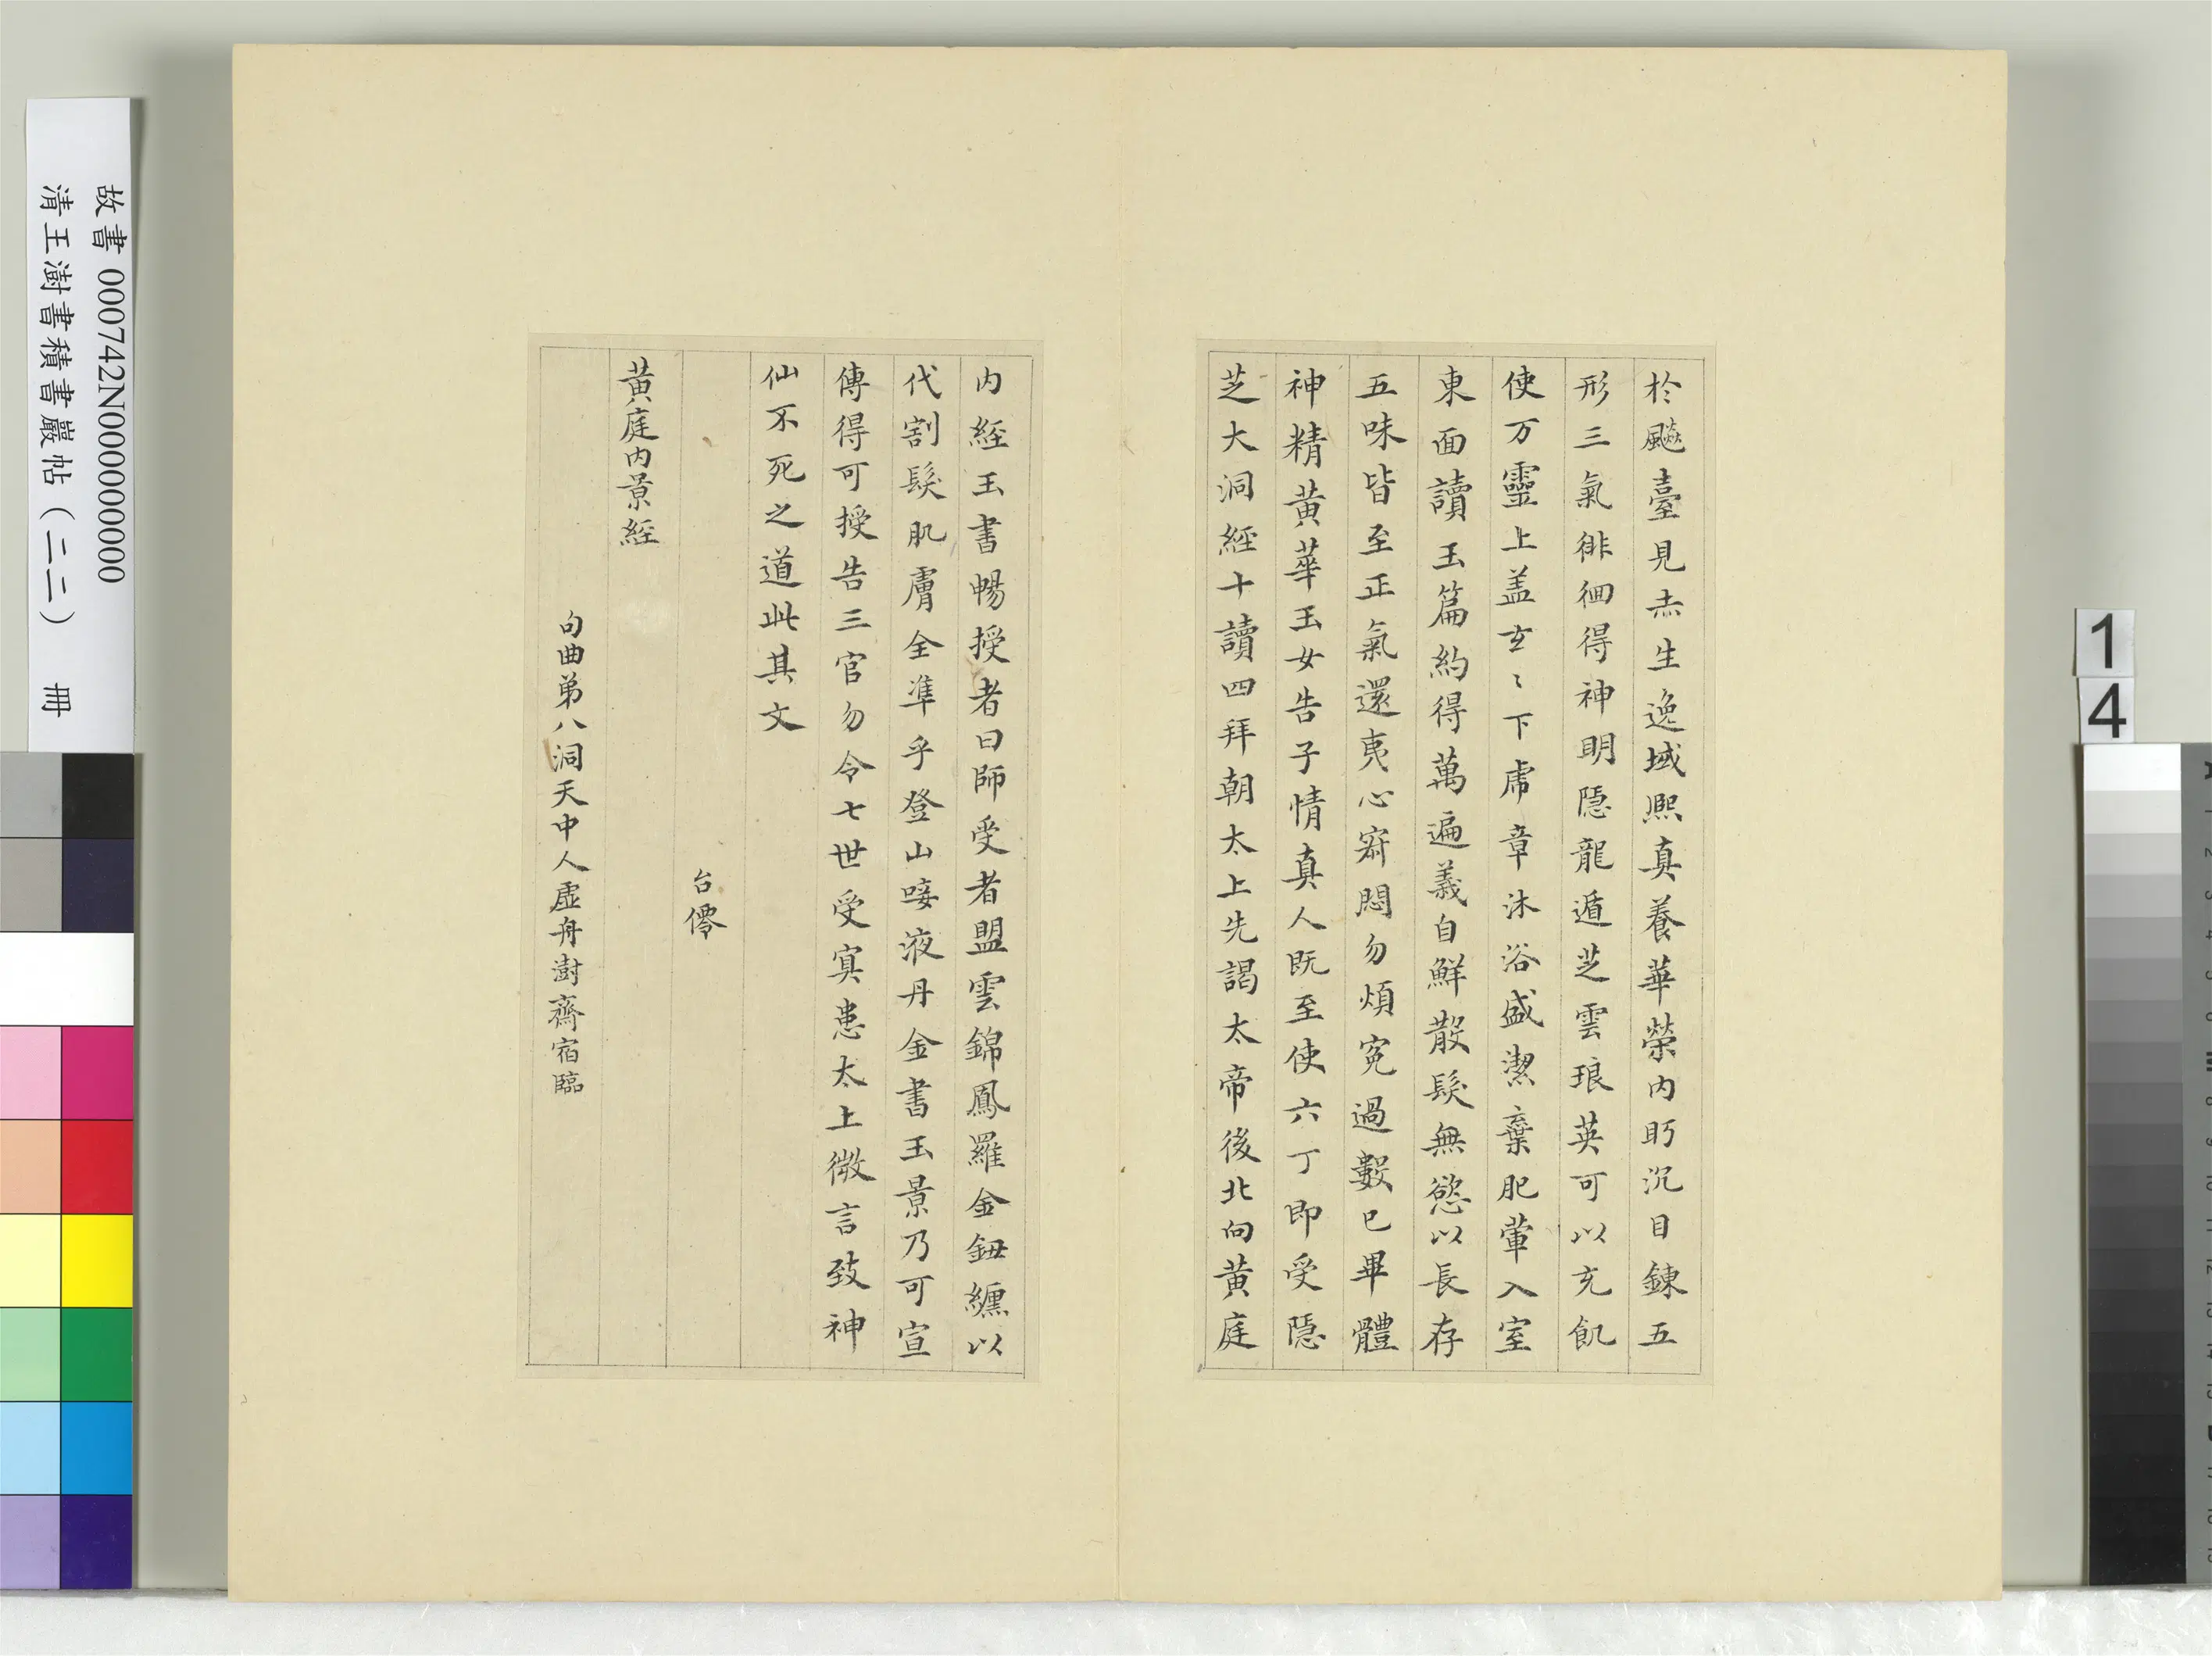 於飈臺見赤生逸域熙真養華榮內盻沉目鍊五
形三氣徘徊得神明隱龍遁芝雲琅英可以充飢
使万靈上盖玄〻下虎章沐浴盛潔棄肥葷入室
東面讀玉篇約得萬遍義自鮮散髮無慾以長存
五味皆至正氣還夷心窮悶勿煩寃過數已畢體
神精黃華玉女告子情真人既至使六丁即受隱
芝大洞經十讀四拜朝太上先謁太帝後北向黃庭
內經玉書暢授者曰師受者盟雲錦鳳羅金鈕纏以
代割髮肌膚全準乎登山唼液丹金書玉景乃可宣
傳得可授告三官勿令七世受冥患太上微言致神
仙不死之道此其文
台僊
黃庭內景經
句曲苐八洞天中人虛舟澍齋宿臨
故書 000742N000000000
清王澍書積書巖帖(二二) 冊
1
4